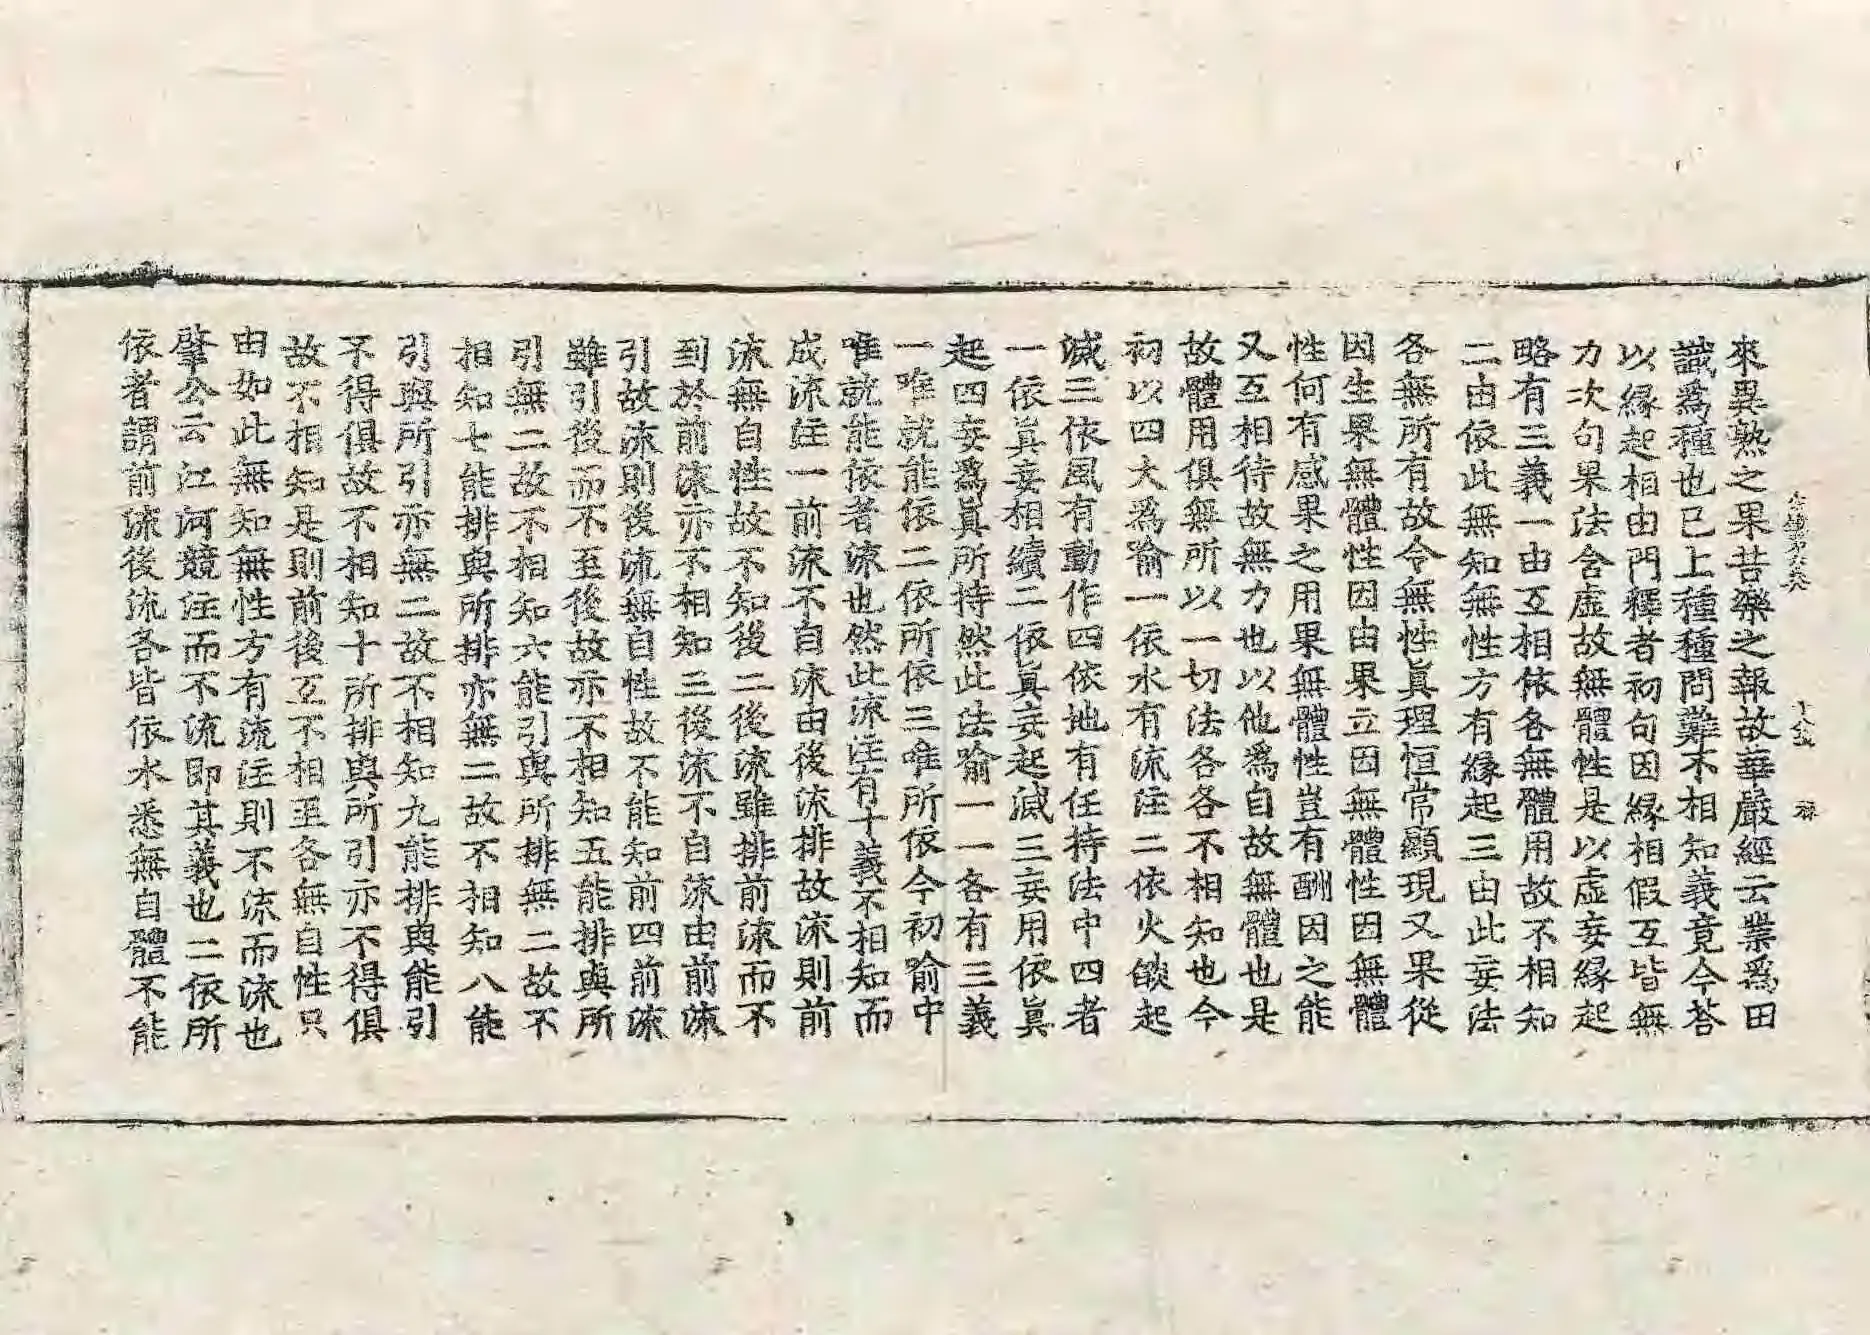 來異熟之果苦樂之報故華嚴經云業爲田
識爲種也已上種種問難不相知義竟今荅
以緣起相由門釋者初句因緣相假互皆無
力次句果法含虛故無體性是以虛妄緣起
略有三義一由互相依各無體用故不相知
二由依此無知無性方有緣起三由此妄法
各無所有故令無性眞理恒常顯現又果從
因生果無體性因由果立因無體性因無體
性何有感果之用果無體性豈有酬因之能
又互相待故無力也以他爲自故無體也是
故體用俱無所以一切法各各不相知也今
初以四大爲喻一依水有流注二依火焰起
滅三依風有動作四依地有任持法中四者
一依眞妄相續二依眞妄起滅三妄用依眞
起四妄爲眞所持然此法喻一一各有三義
一唯就能依二依所依三唯所依今初喻中
唯就能依者流也然此流注有十義不相知而
成流注一前流不自流由後流排故流則前
流無自性故不知後二後流雖排前流而不
到於前流亦不相知三後流不自流由前流
引故流則後流無自性故不能知前四前流
雖引後而不至後故亦不相知五能排與所
引無二故不相知六能引與所排無二故不
相知七能排與所排亦無二故不相知八能
引與所引亦無二故不相知九能排與能引
不得俱故不相知十所排與所引亦不得俱
故不相知是則前後互不相至各無自性只
由如此無知無性方有流注則不流而流也
肇公云江河競注而不流即其義也二依所
依者謂前流後流各皆依水悉無自體不能